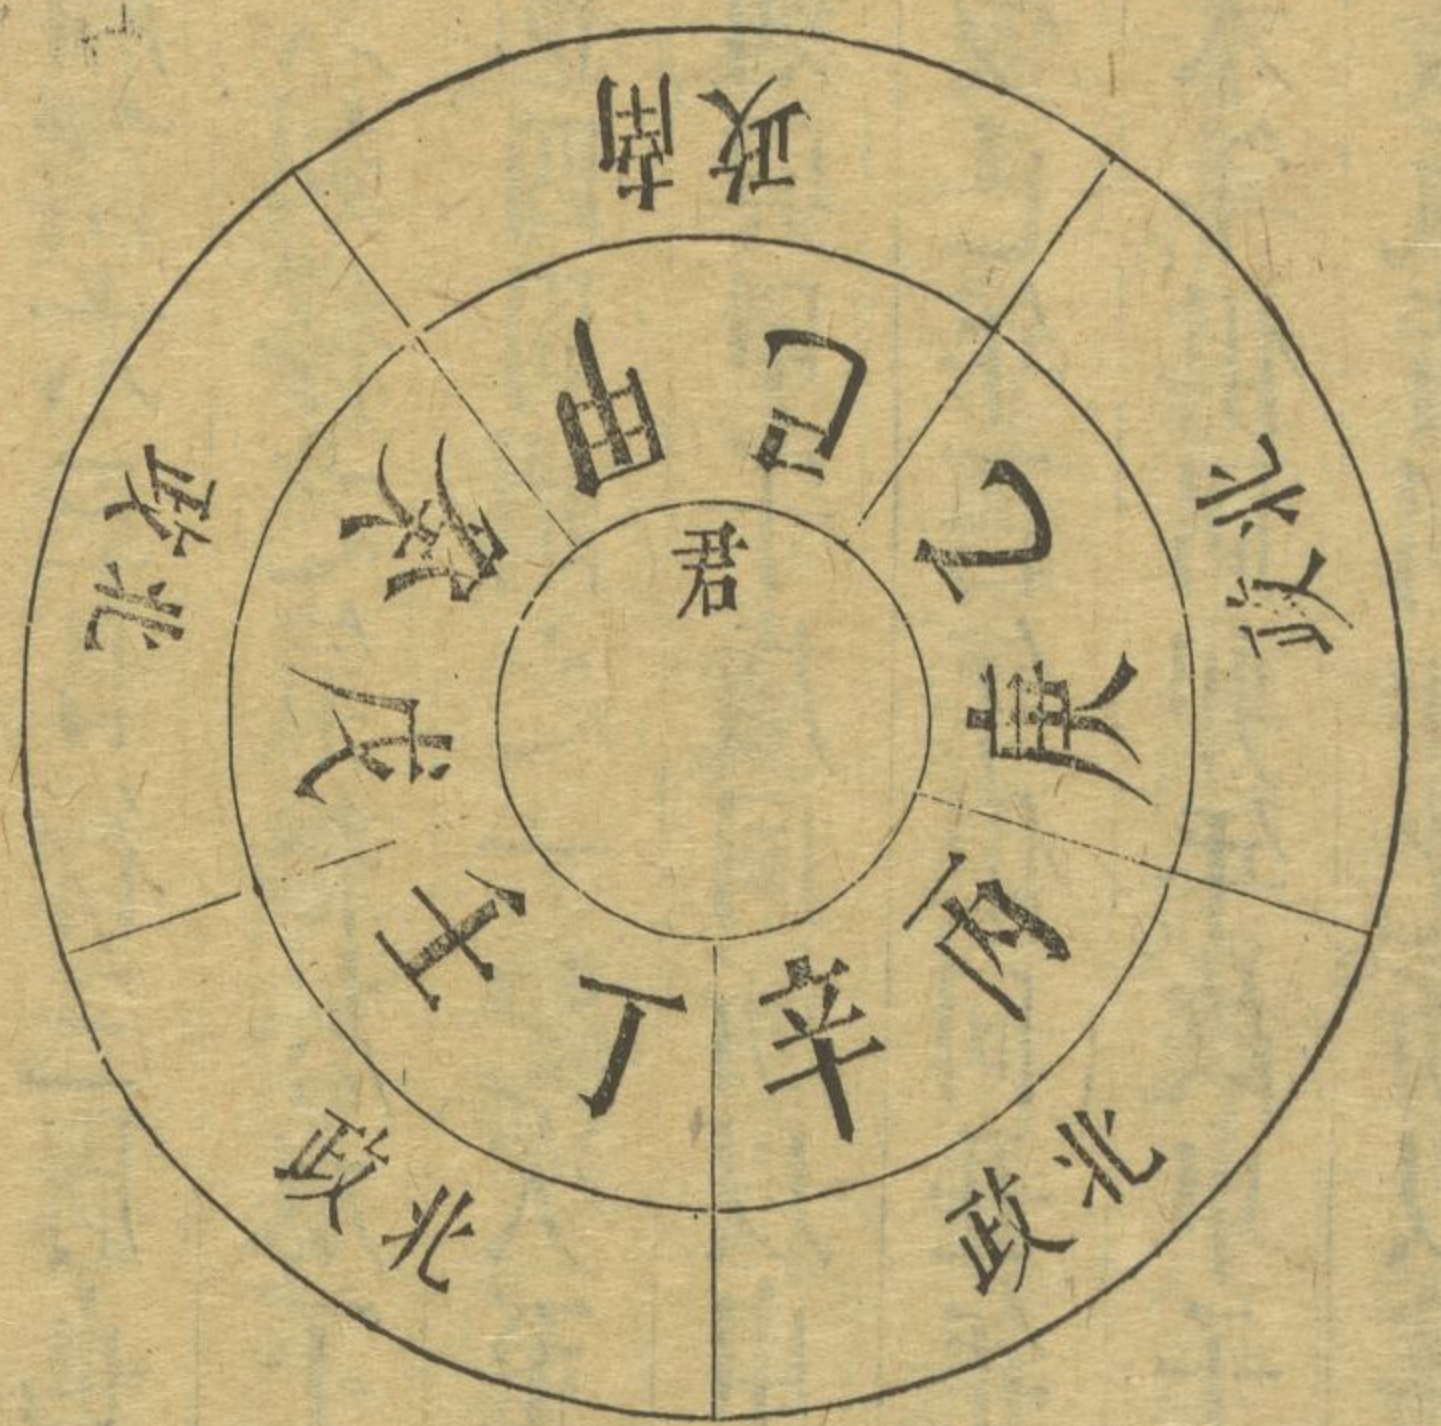 南政
北政
北政
北政
北政
甲己
乙庚
丙辛
丁壬
戊癸
君